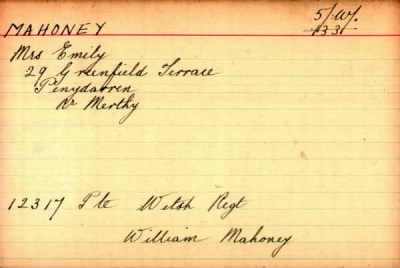 MAHONEY 5/W.
Mrs Emily
29 Greenfield Terrace
Penydarren
Nr Merthy
12317 Pte Welsh Regt
William Mahoney